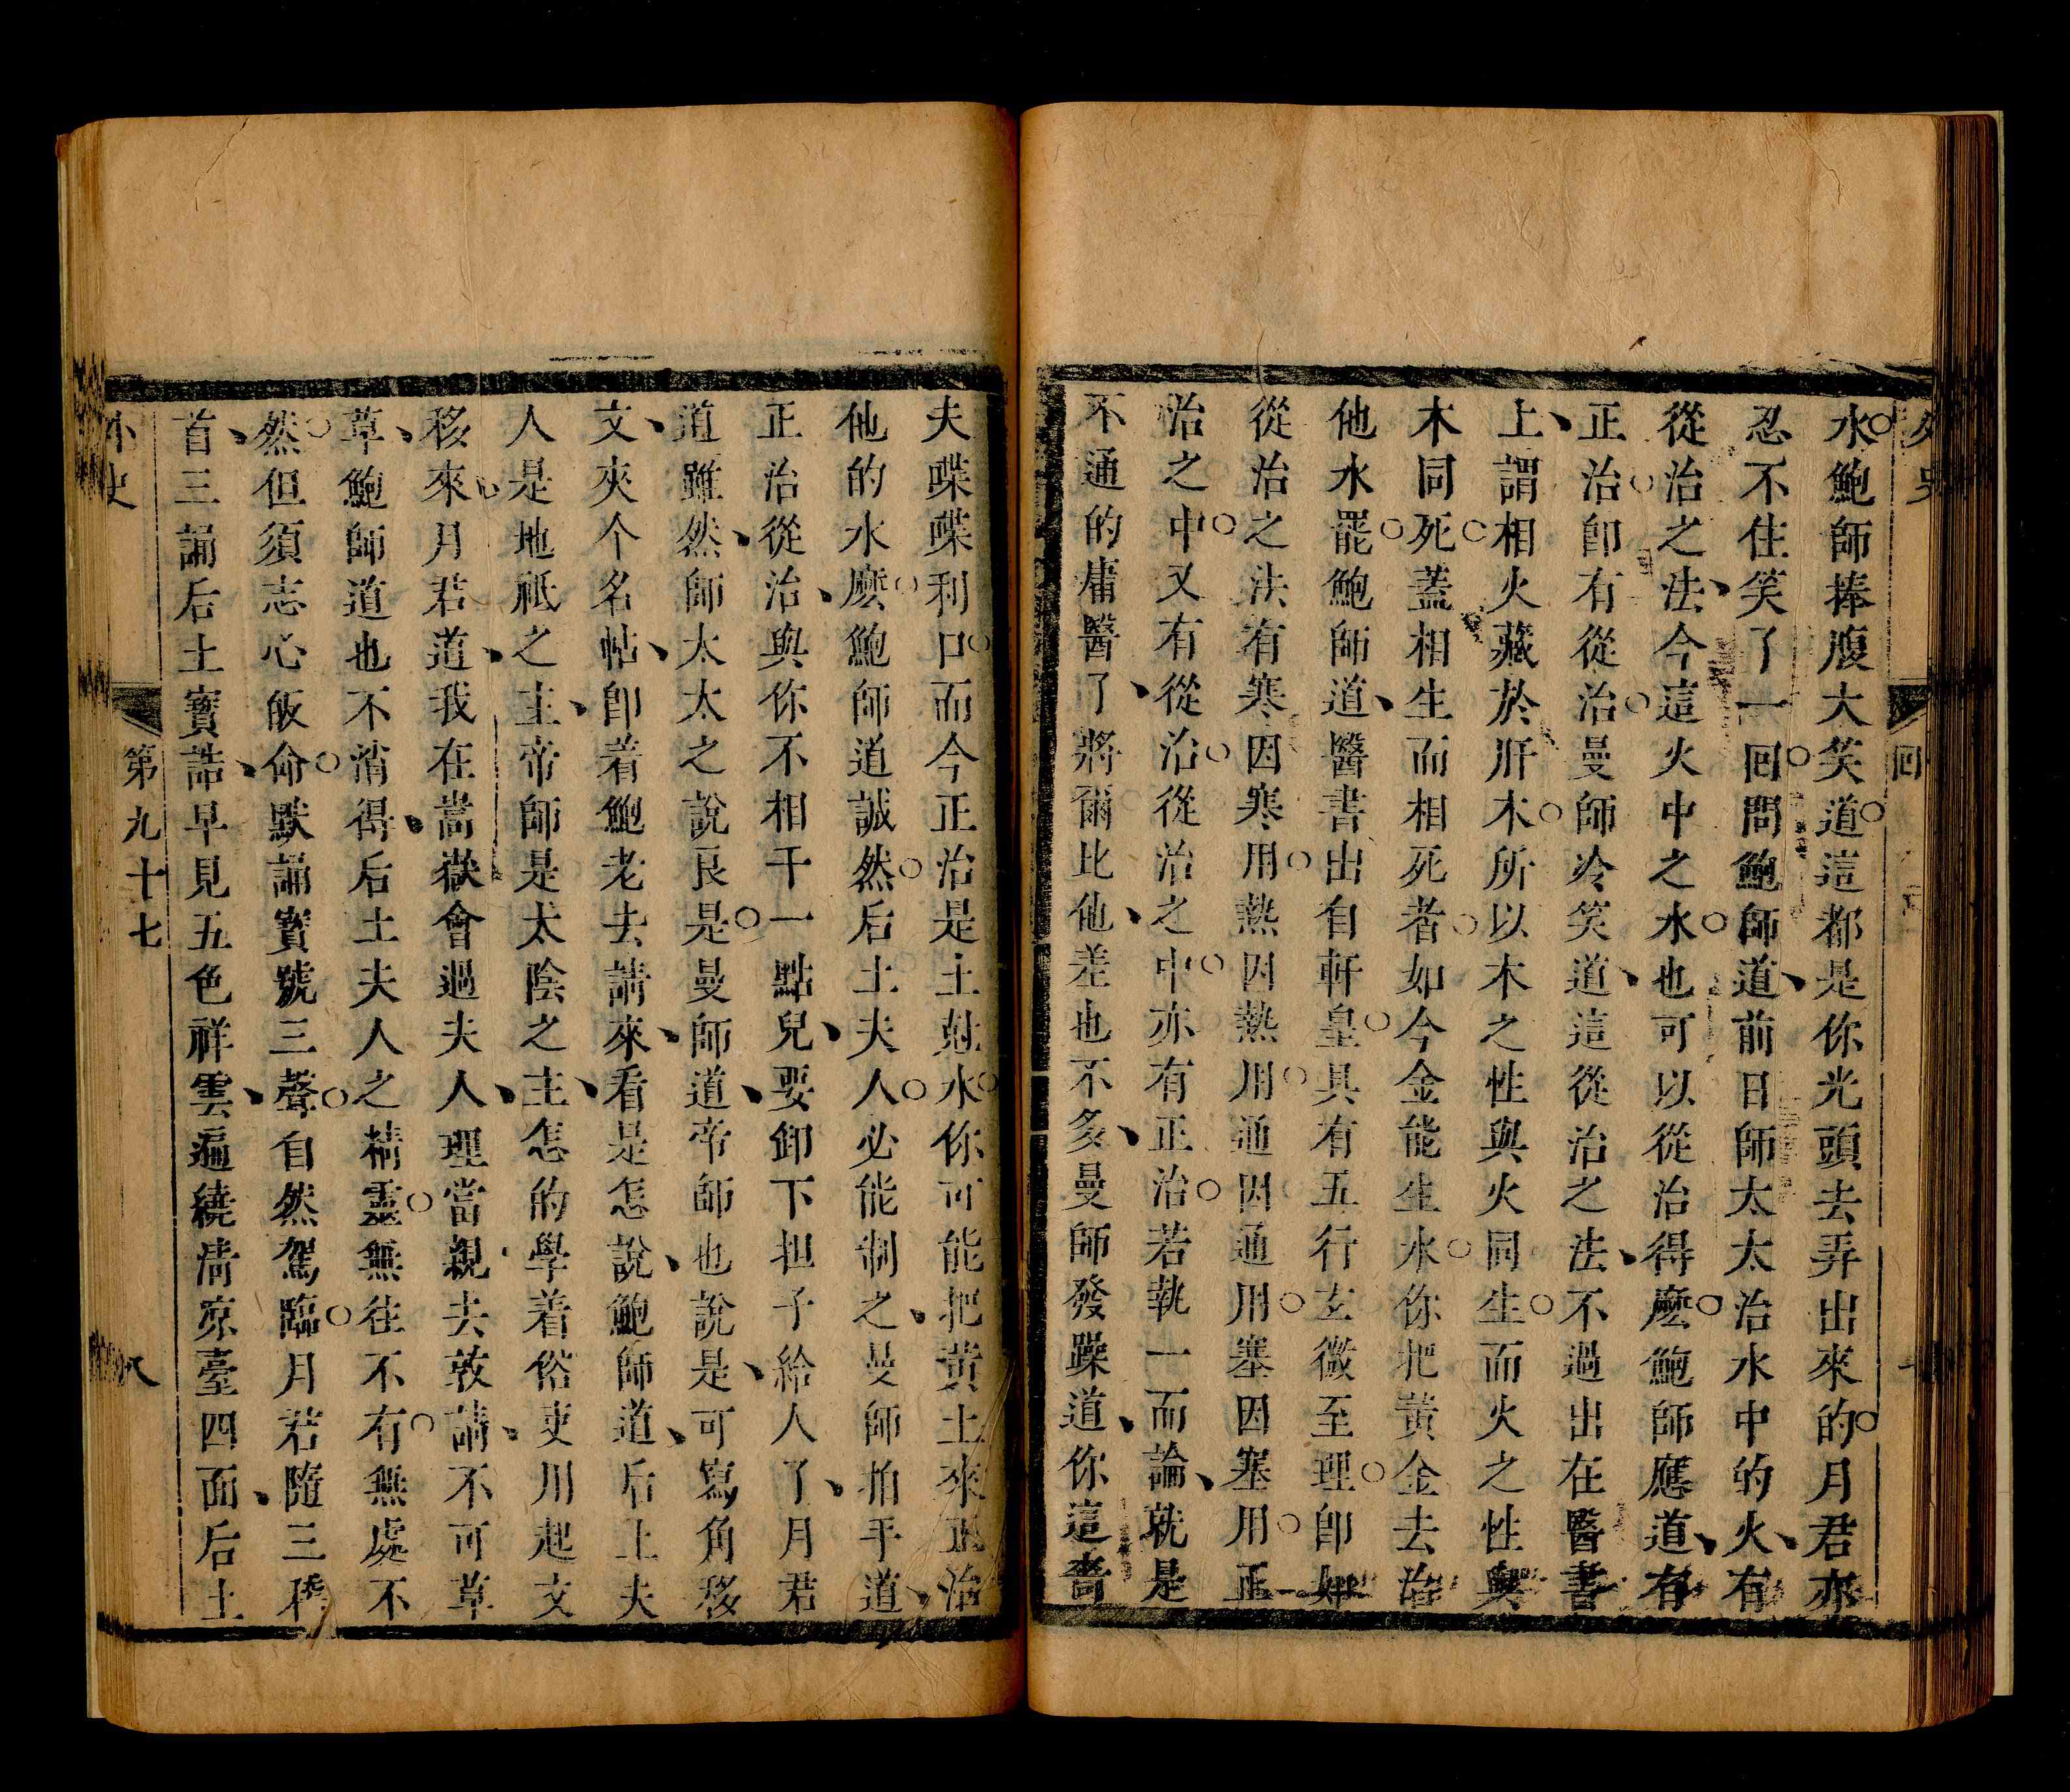 外史
回
水鮑師捧腹大笑道這都是你光頭去弄出來的月君亦
忍不住笑了一回問鮑師道前日師太太治水中的火有
從治之法今這火中之水也可以從治得麽鮑師應道有
正治卽有從治曼師冷笑道這從治之法不過出在醫書
上謂相火藏於肝木所以木之性與火同生而火之性與
木同死蓋相生而相死者如今金能生水你把黃金去治
他水罷鮑師道醫書出自軒皇具有五行玄微至理卽如
從治之法有寒因寒用熱因熱用通因通用塞因塞用正
治之中又有從治從治之中亦有正治若執一而論就是
不通的庸醫了將爾比他差也不多曼師發躁道你這嗇
夫喋喋利口而今正治是土尅水你可能把黃土來正治
他的水麽鮑師道誠然后土夫人必能制之曼師拍手道
正治從治與你不相干一點兒要卸下担子給人了月君
道雖然師太太之說良是曼師道帝師也說是可寫角移
文夾个名帖卽着鮑老去請來看是怎說鮑師道后土夫
人是地祇之主帝師是太陰之主怎的學着俗吏用起文
移來月君道我在嵩嶽會過夫人理當親去敦請不可草
草鮑師道也不消得后土夫人之精靈無往不有無處不
然但須志心皈命默誦寳號三聲自然駕臨月君隨三稽
首三誦后土寳誥早見五色祥雲遍繞淸凉臺四面后土
外史
第九十七
八